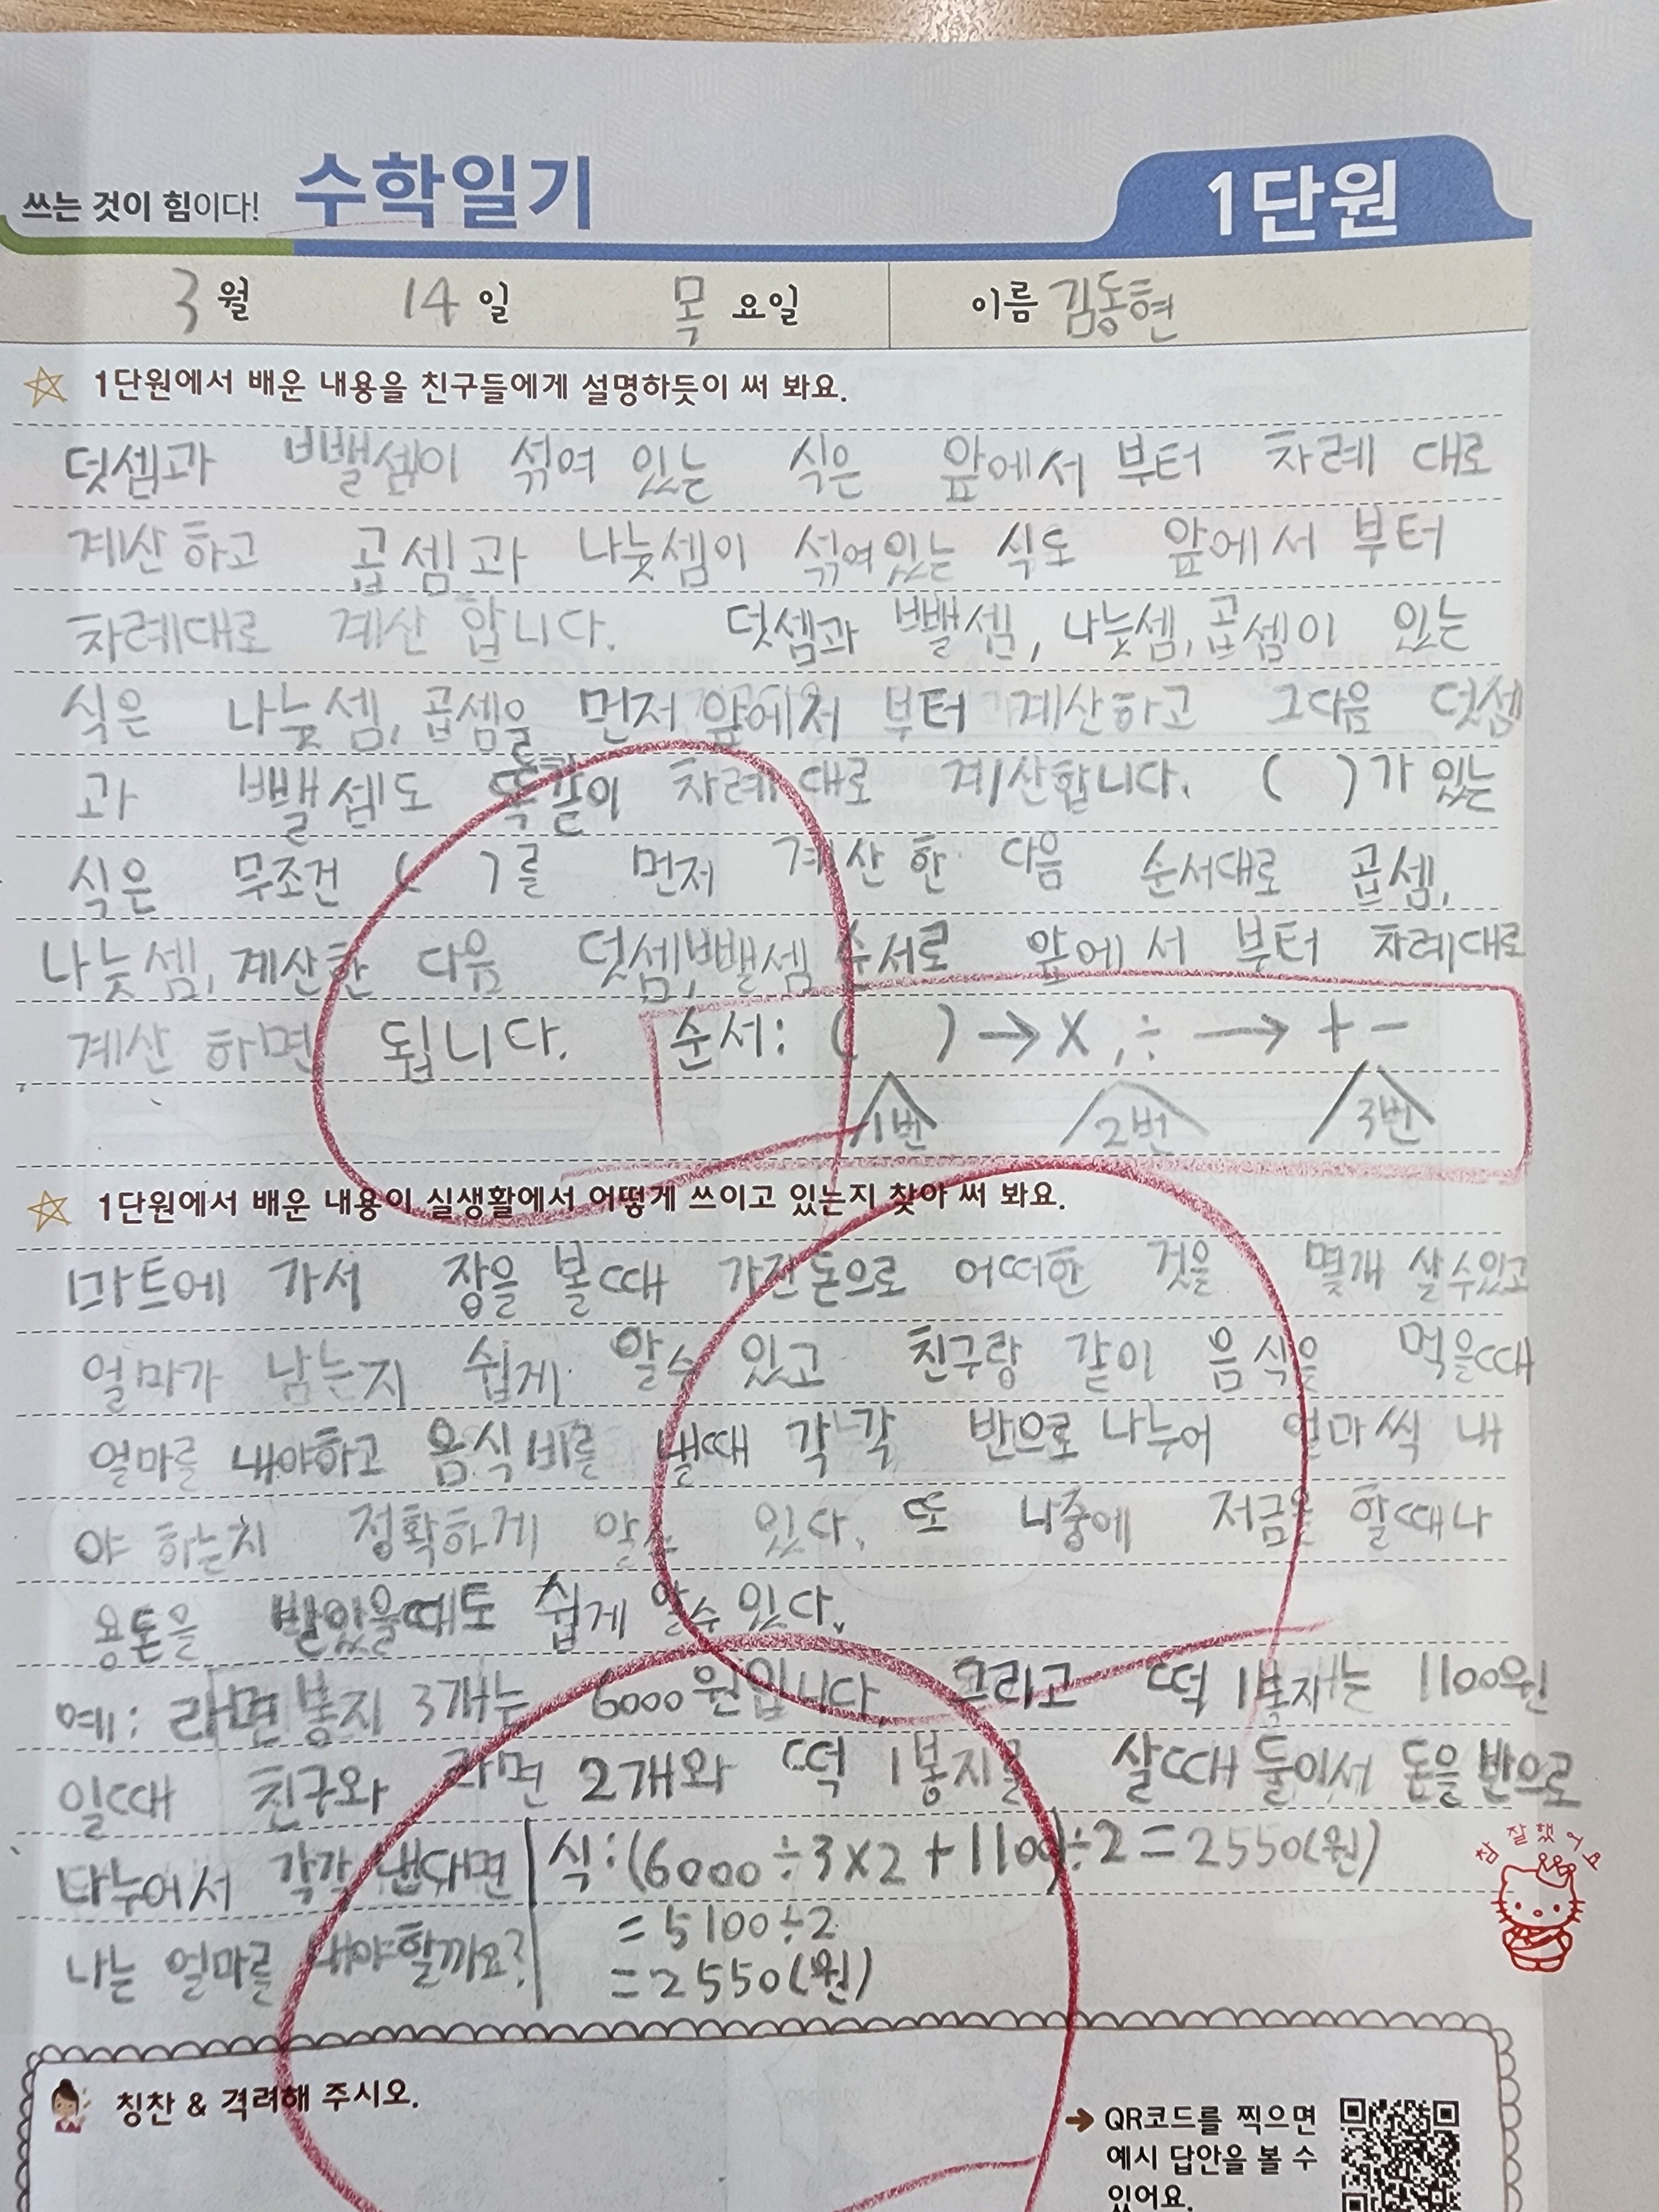 쓰는 것이 힘이다! 수학일기 1단원
3월 14일 목요일 이름 김동현
1단원에서 배운 내용을 친구들에게 설명하듯이 써 봐요.
덧셈과 뺄셈이 섞여 있는 식은 앞에서 부터 차례 대로
계산하고 곱셈과 나눗셈이 섞여있는 식도 앞에서 부터
차례대로 계산 합니다. 덧셈과 뺄셈, 나눗셈, 곱셈이 있는
식은 나눗셈, 곱셈을 먼저 앞에서 부터 계산하고 그다음 덧셈
과 뺄셈도 똑같이 차례대로 계산합니다. ( )가 있는
식은 무조건 ( )를 먼저 계산 한 다음 순서대로 곱셈,
나눗셈, 계산한 다음 덧셈, 뺄셈 순서로 앞에서 부터 차례대로
계산 하면 됩니다. 순서: ( ) → ×, ÷ → + −
1번 2번 3번
1단원에서 배운 내용이 실생활에서 어떻게 쓰이고 있는지 찾아 써 봐요.
마트에 가서 장을 볼때 가진돈으로 어떠한 것을 몇개 살수있고
얼마가 남는지 쉽게 알수 있고 친구랑 같이 음식을 먹을때
얼마를 내야하고 음식비를 낼때 각각 반으로 나누어 얼마씩 내
야 하는지 정확하게 알수 있다. 또 나중에 저금을 할때나
용돈을 받았을때도 쉽게 알수 있다.
예: 라면봉지 3개는 6000원입니다. 그리고 떡 1봉지는 1100원
일때 친구와 라면 2개와 떡 1봉지를 살때 둘이서 돈을 반으로
나누어서 각각 낸다면 식: (6000÷3×2+1100)÷2=2550(원)
나는 얼마를 내야할까요? =5100÷2
=2550(원)
참 잘했어요
칭찬 & 격려해 주시오.
QR코드를 찍으면
예시 답안을 볼 수
있어요.